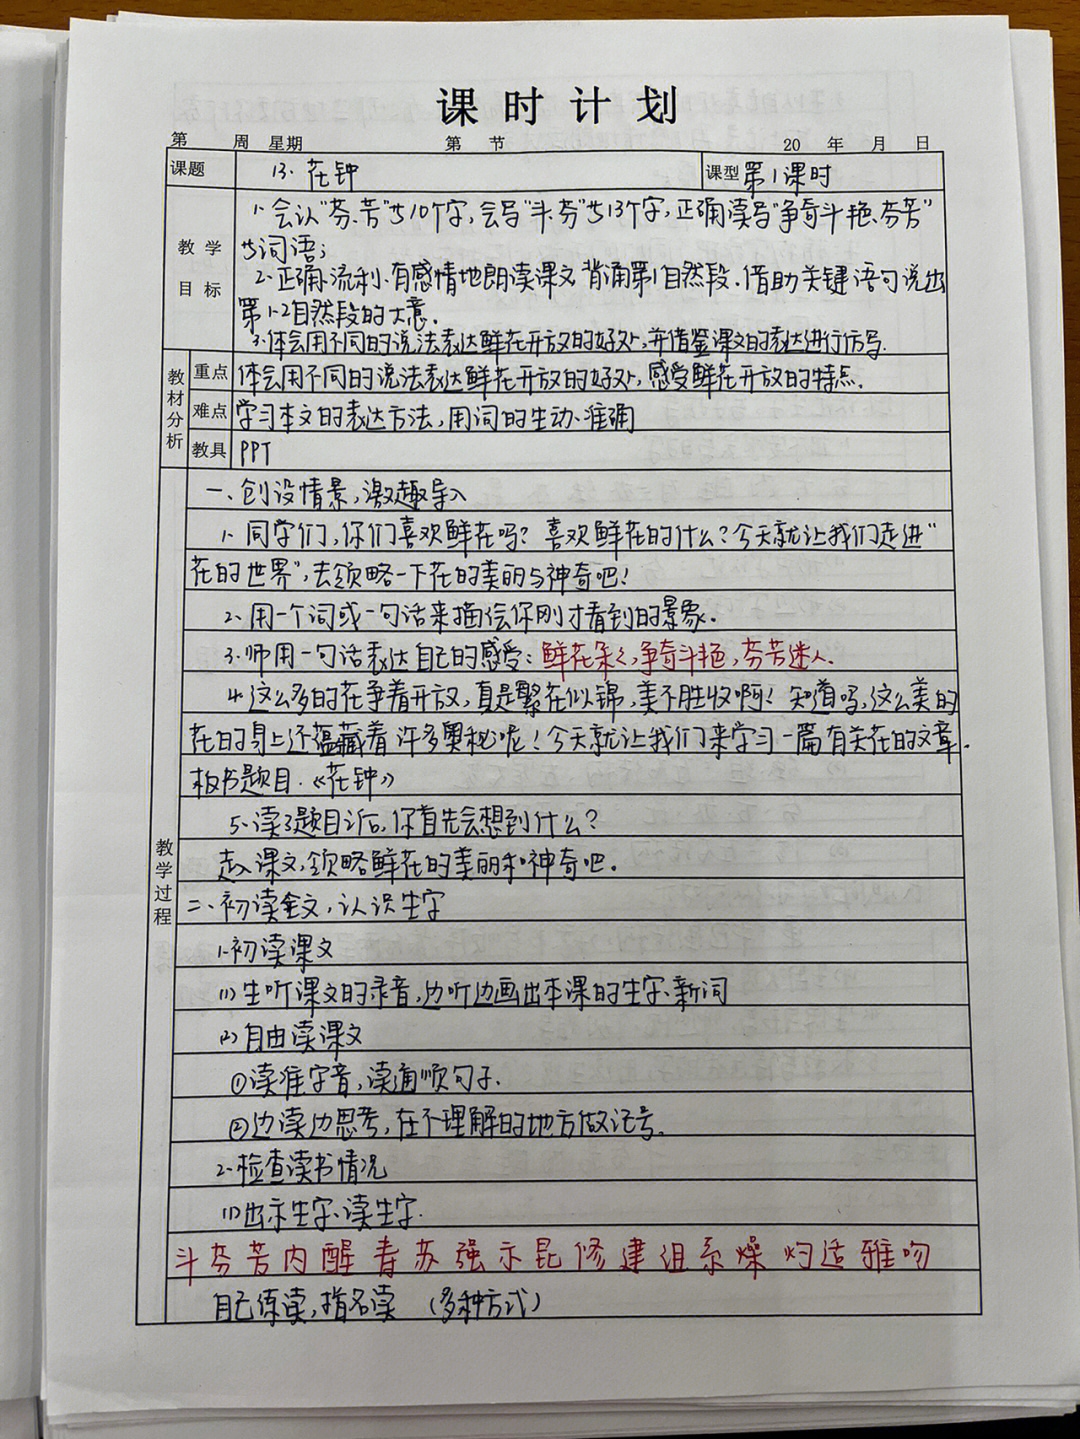 课时计划
第 周 星期 第 节 20 年 月 日
课题 13、花钟 课型 第1课时
教学目标
1、会认“芬、芳”等10个字,会写“斗、芬”等13个字,正确读写“争奇斗艳、芬芳”
等词语;
2、正确、流利、有感情地朗读课文,背诵第1自然段、借助关键语句说出
第1-2自然段的大意.
3、体会用不同的说法表达鲜花开放的好处,并借鉴课文的表达进行仿写.
教材分析
重点 体会用不同的说法表达鲜花开放的好处,感受鲜花开放的特点.
难点 学习本文的表达方法,用词的生动、准确
教具 PPT
教学过程
一、创设情景,激趣导入
1、同学们,你们喜欢鲜花吗?喜欢鲜花的什么?今天就让我们走进“
花的世界”,去领略一下花的美丽与神奇吧!
2、用一个词或一句话来描绘你刚才看到的景象.
3、师用一句话表达自己的感受:鲜花朵々,争奇斗艳,芬芳迷人.
4、这么多的花争着开放,真是繁花似锦,美不胜收啊!知道吗,这么美的
花的身上还蕴藏着许多奥秘呢!今天就让我们来学习一篇有关花的文章.
板书题目.《花钟》
5、读了题目之后,你首先会想到什么?
走入课文,领略鲜花的美丽和神奇吧.
二、初读全文,认识生字
1、初读课文
(1)生听课文的录音,边听边画出本课的生字、新词
(2)自由读课文
①读准字音,读通顺句子.
②边读边思考,在不理解的地方做记号.
2、检查读书情况
(1)出示生字、读生字.
斗芬芳内醒寿苏强示昆修建组系燥灼适雅吻
自己练读,指名读 (多种方式)